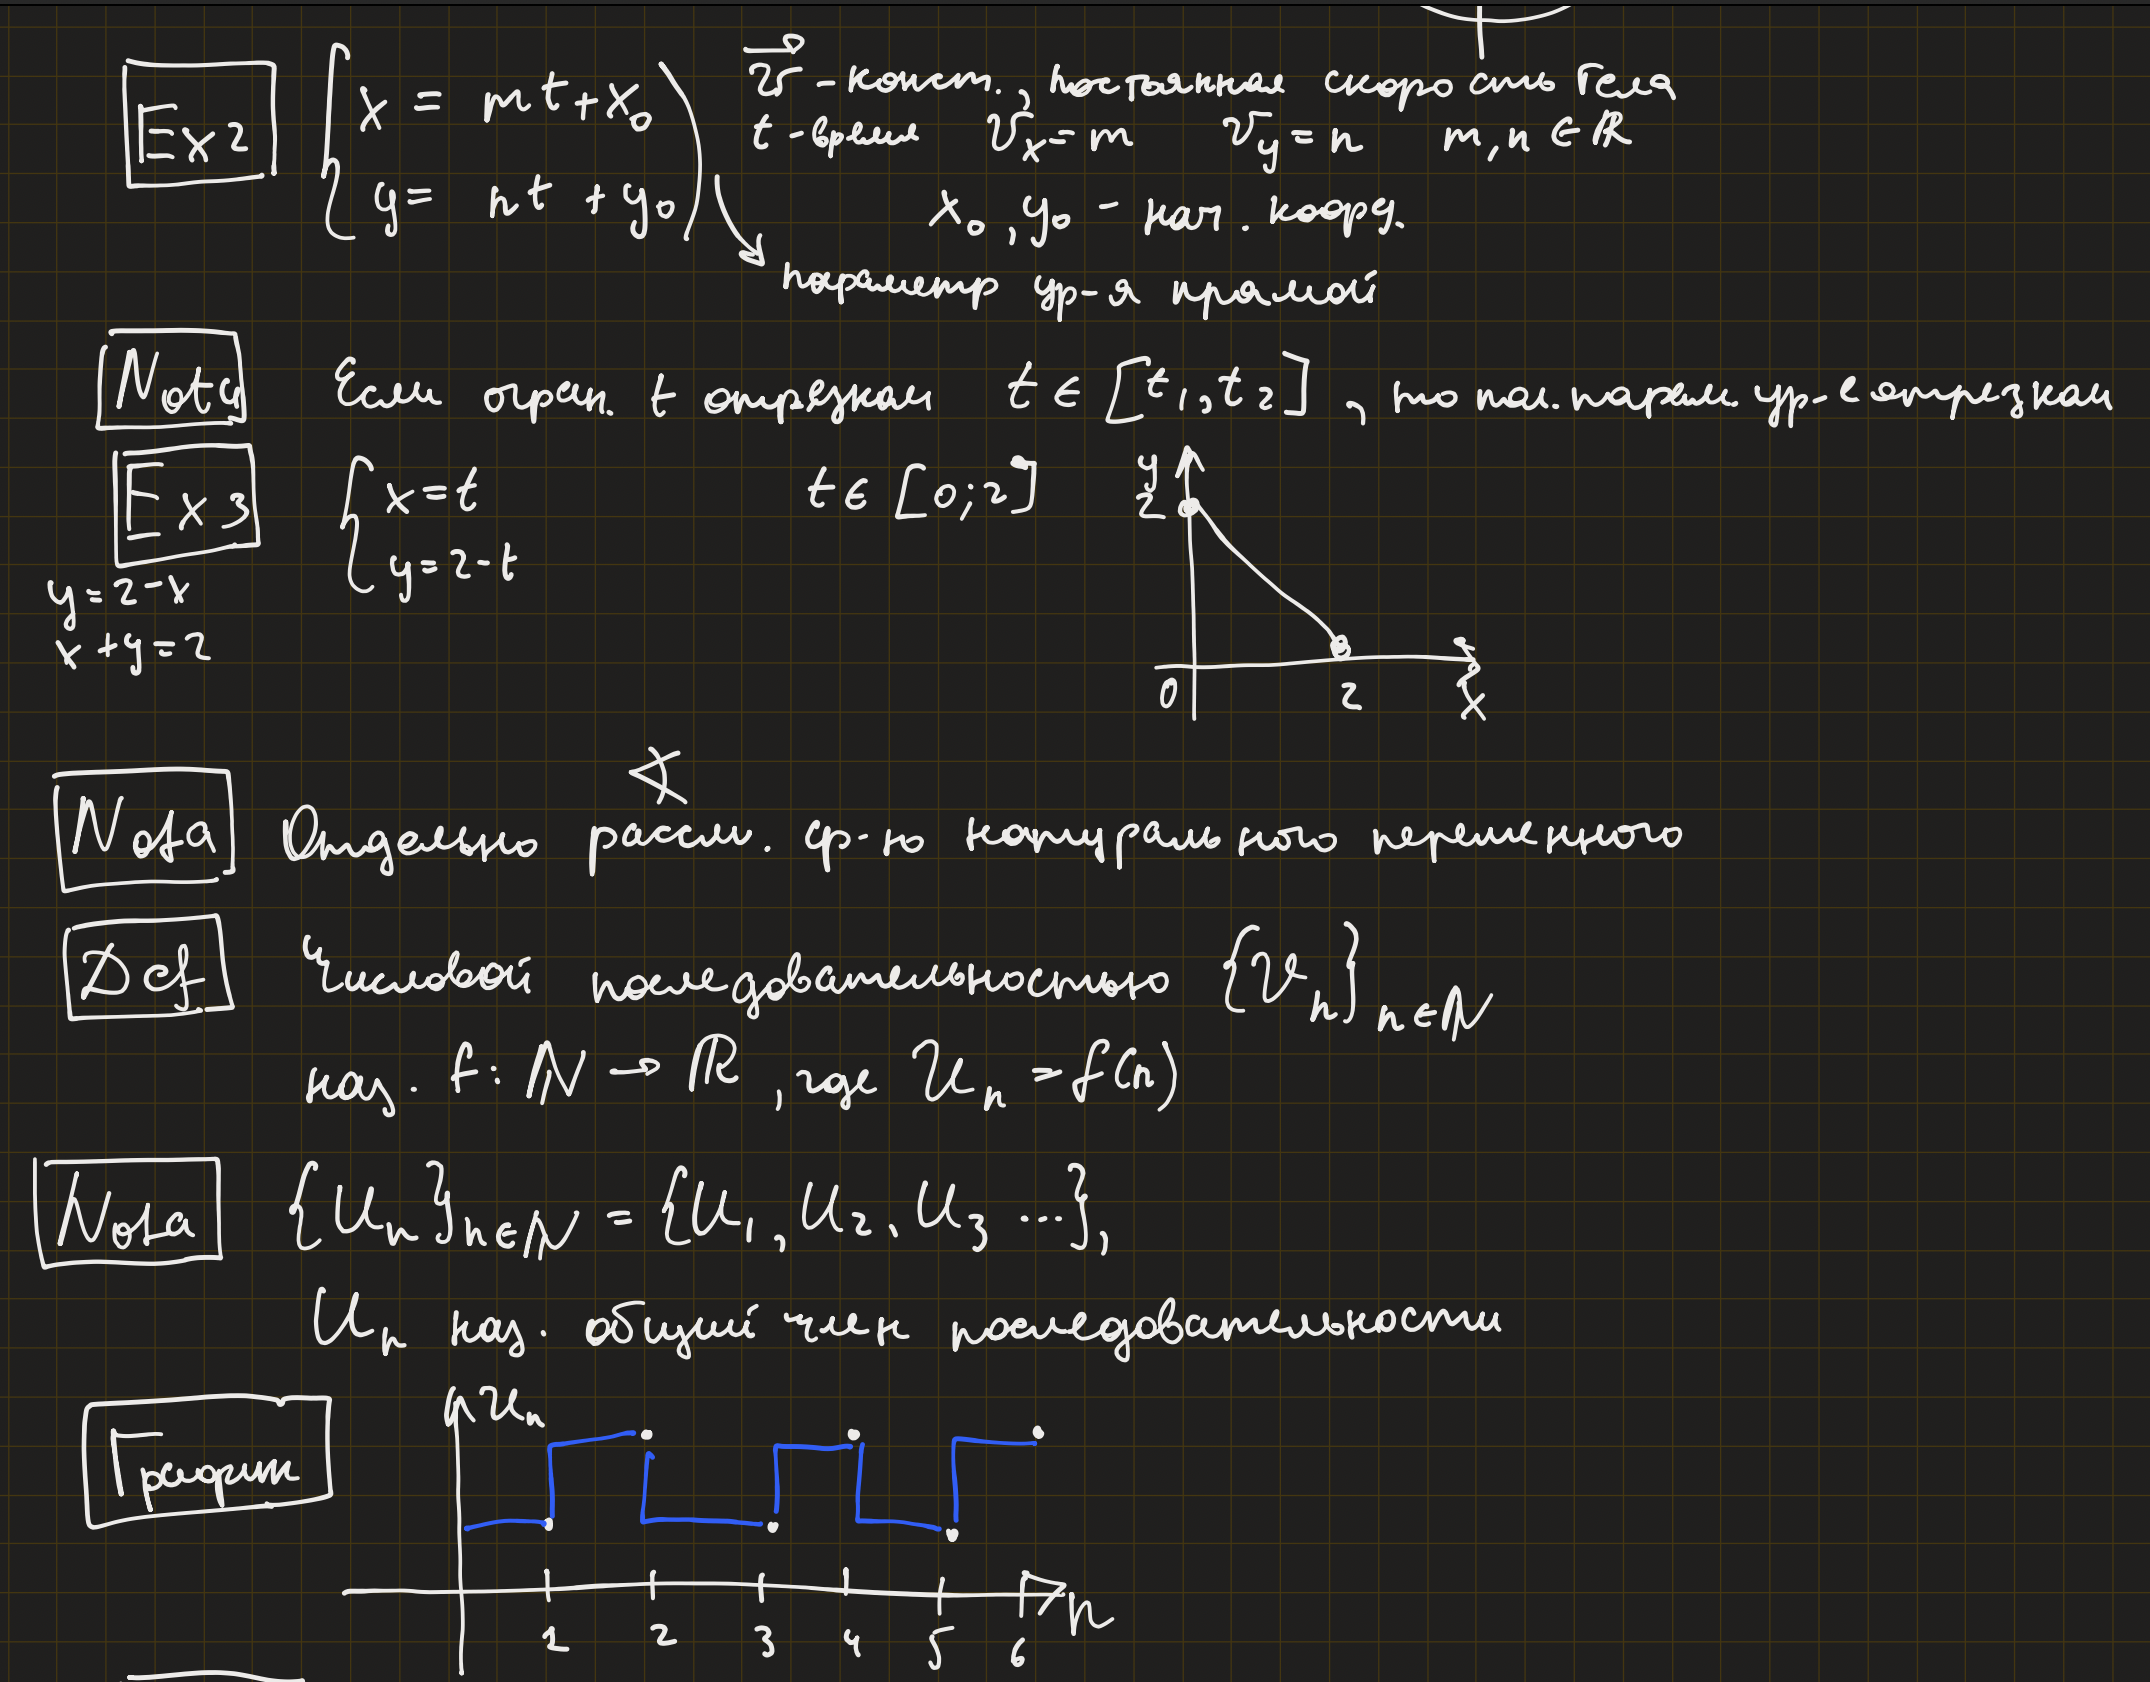 Ex 2 { x = mt + x₀ v⃗ - конст., постоянная скорость тела
t - время vₓ = m v_y = n m, n ∈ ℝ
y = nt + y₀ x₀, y₀ - нач. коорд.
параметр ур-я прямой
Nota Если огран. t отрезком t ∈ [t₁, t₂], то пол. парам. ур-е отрезком
Ex 3 { x = t t ∈ [0; 2]
y = 2 - t
y = 2 - x
x + y = 2
y
2
0 2 x
∢
Nota Отдельно рассм. ф-ю натурального переменного
Def Числовой последовательностью {V_n}_{n∈ℕ}
наз. f: ℕ → ℝ, где U_n = f(n)
Nota {U_n}_{n∈ℕ} = {U₁, U₂, U₃ ...},
U_n наз. общий член последовательности
График U_n
n
1 2 3 4 5 6